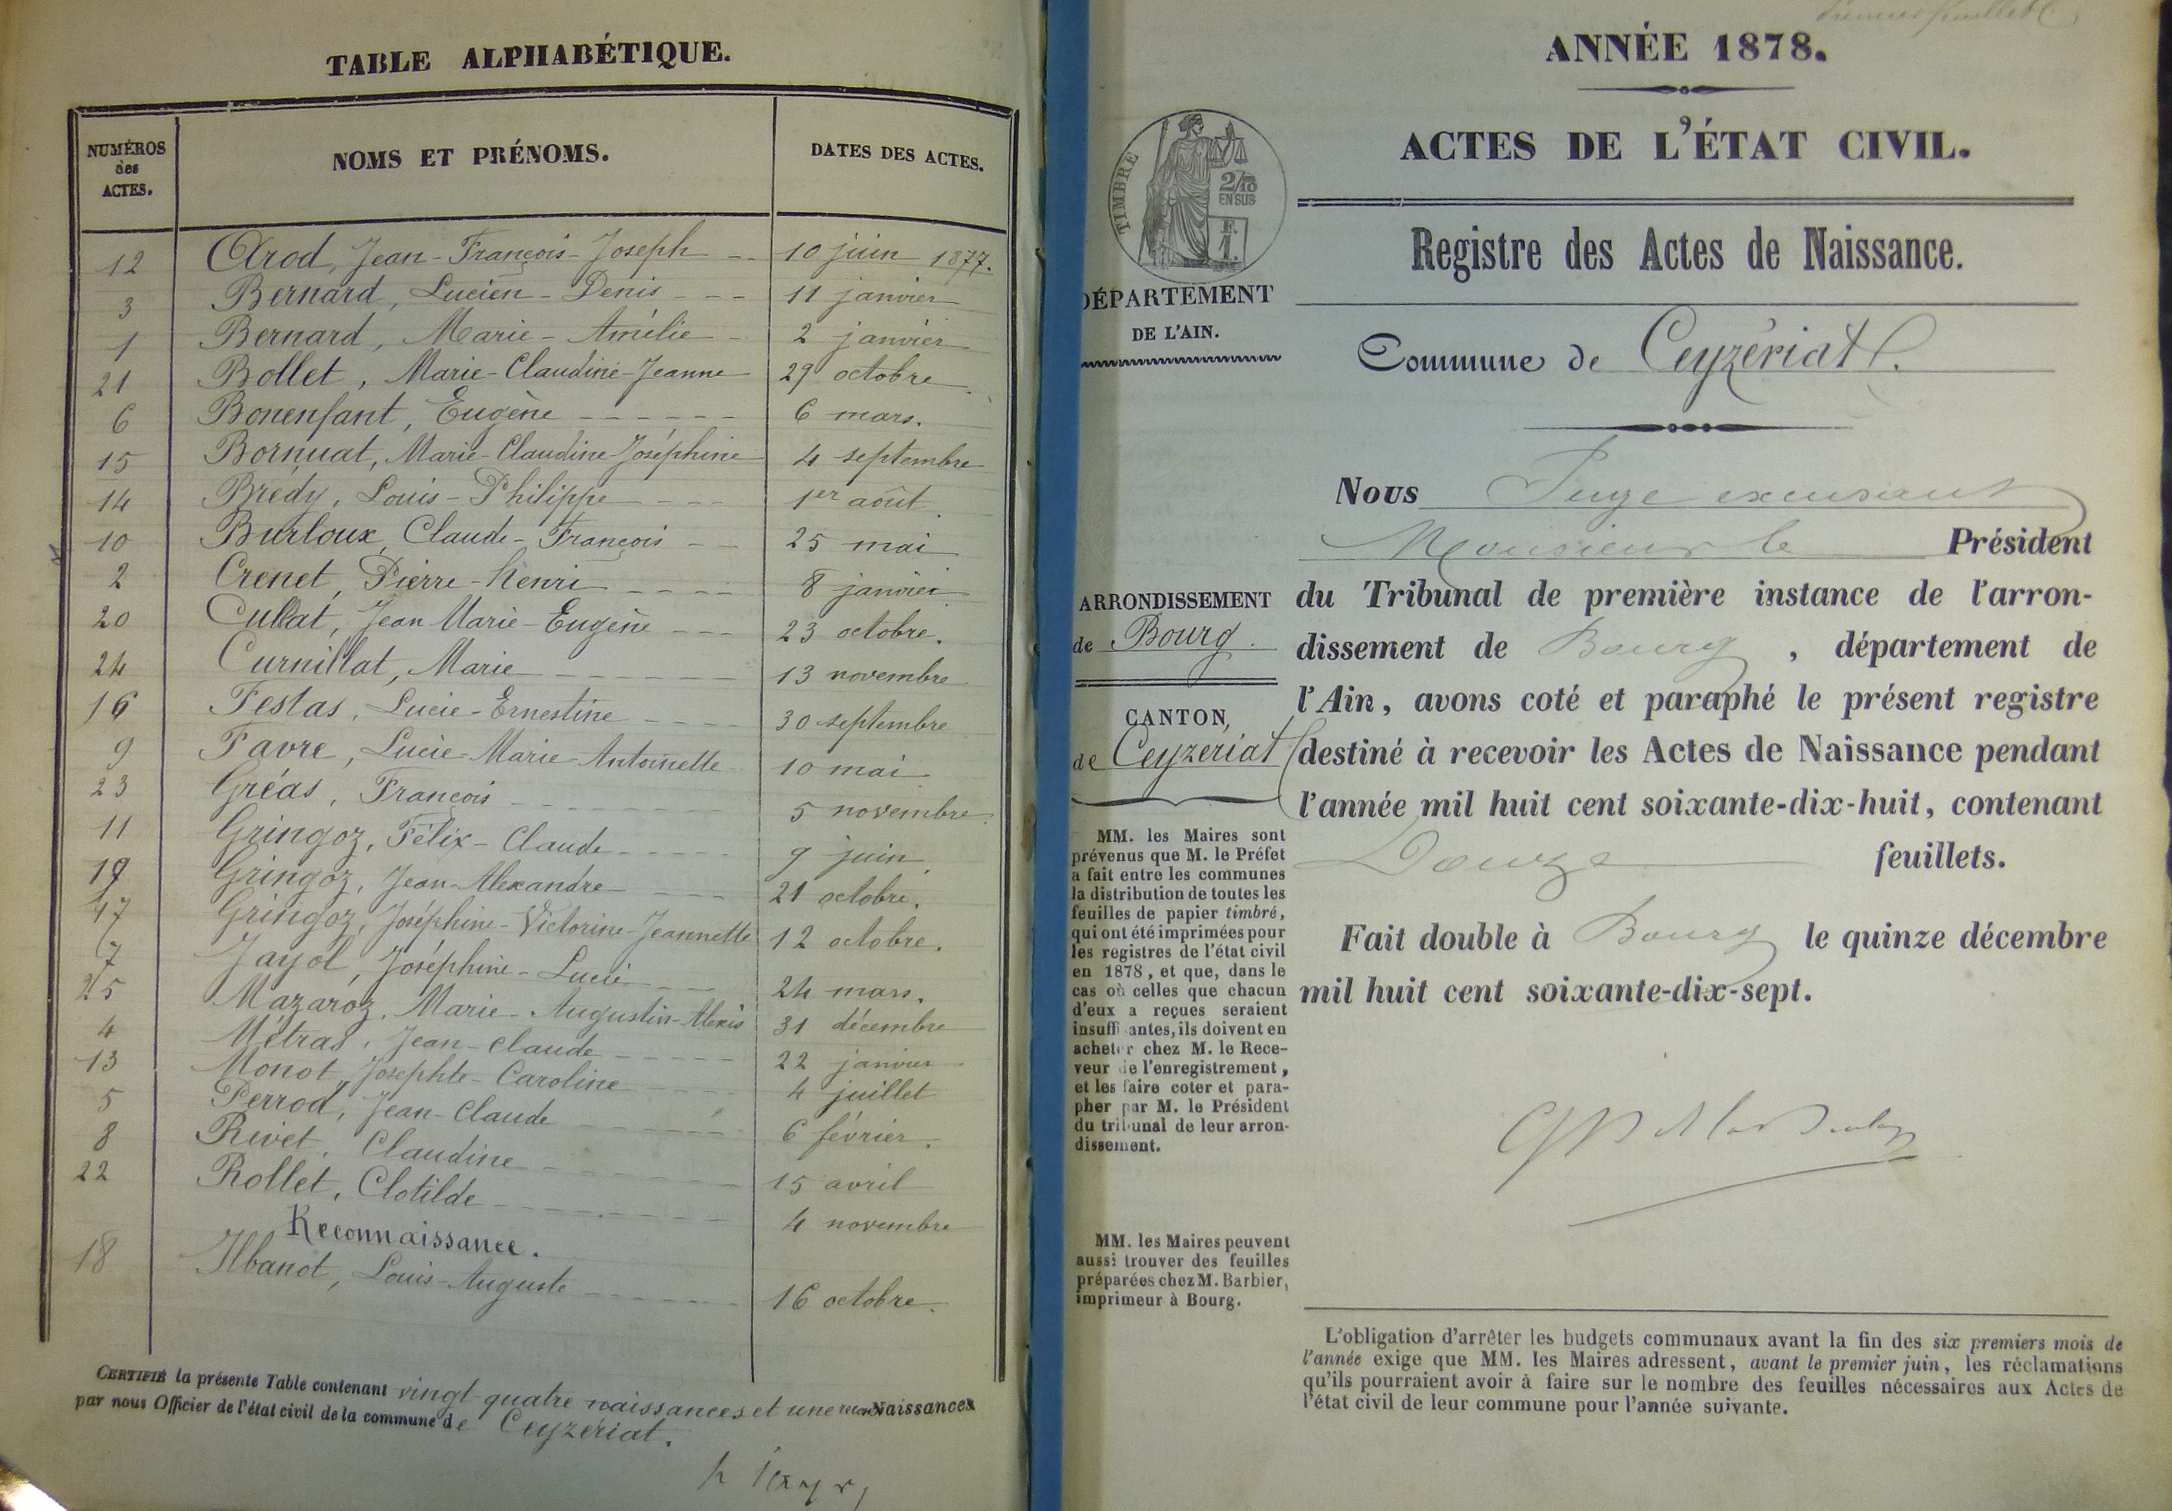 TABLE ALPHABÉTIQUE.
NUMÉROS des ACTES. NOMS ET PRÉNOMS. DATES DES ACTES.
12 Arod, Jean-François-Joseph 10 juin 1877.
3 Bernard, Lucien-Denis 11 janvier
1 Bernard, Marie-Amélie 2 janvier
21 Bollet, Marie-Claudine-Jeanne 29 octobre
6 Bonenfant, Eugène 6 mars.
15 Bornuat, Marie-Claudine-Joséphine 4 septembre
14 Bredy, Louis-Philippe 1er août
10 Burloux, Claude-François 25 mai
2 Crenet, Pierre-Henri 8 janvier
20 Cullat, Jean Marie-Eugène 23 octobre.
24 Curnillat, Marie 13 novembre
16 Festas, Lucie-Ernestine 30 septembre
9 Favre, Lucie-Marie-Antoinette 10 mai
23 Gréas, François 5 novembre
11 Gringoz, Félix-Claude 9 juin
19 Gringoz, Jean-Alexandre 21 octobre.
17 Gringoz, Joséphine-Victorine-Jeannette 12 octobre.
7 Jayol, Joséphine-Lucie 24 mars.
25 Mazaroz, Marie-Augustin-Alexis 31 décembre
4 Métras, Jean-Claude 22 janvier
13 Monot, Josephte-Caroline 4 juillet
5 Perrod, Jean-Claude 6 février.
8 Rivet, Claudine 15 avril
22 Rollet, Clotilde 4 novembre
Reconnaissance.
18 Louis-Auguste 16 octobre.
CERTIFIÉ la présente Table contenant vingt-quatre naissances et une Naissances
par nous Officier de l'état civil de la commune de Ceyzériat.
ANNÉE 1878.
ACTES DE L'ÉTAT CIVIL.
TIMBRE
2/10
EN SUS
F.
1.
Registre des Actes de Naissance.
DÉPARTEMENT
DE L'AIN.
Commune de Ceyzériat.
Nous Juge excusant
Monsieur le Président
du Tribunal de première instance de l'arron-
dissement de Bourg, département de
l'Ain, avons coté et paraphé le présent registre
destiné à recevoir les Actes de Naissance pendant
l'année mil huit cent soixante-dix-huit, contenant
Douze feuillets.
Fait double à Bourg le quinze décembre
mil huit cent soixante-dix-sept.
ARRONDISSEMENT
de Bourg.
CANTON
de Ceyzériat
MM. les Maires sont
prévenus que M. le Préfet
a fait entre les communes
la distribution de toutes les
feuilles de papier timbré,
qui ont été imprimées pour
les registres de l'état civil
en 1878, et que, dans le
cas où celles que chacun
d'eux a reçues seraient
insuffisantes, ils doivent en
acheter chez M. le Rece-
veur de l'enregistrement,
et les faire coter et para-
pher par M. le Président
du tribunal de leur arron-
dissement.
MM. les Maires peuvent
aussi trouver des feuilles
préparées chez M. Barbier,
imprimeur à Bourg.
L'obligation d'arrêter les budgets communaux avant la fin des six premiers mois de
l'année exige que MM. les Maires adressent, avant le premier juin, les réclamations
qu'ils pourraient avoir à faire sur le nombre des feuilles nécessaires aux Actes de
l'état civil de leur commune pour l'année suivante.